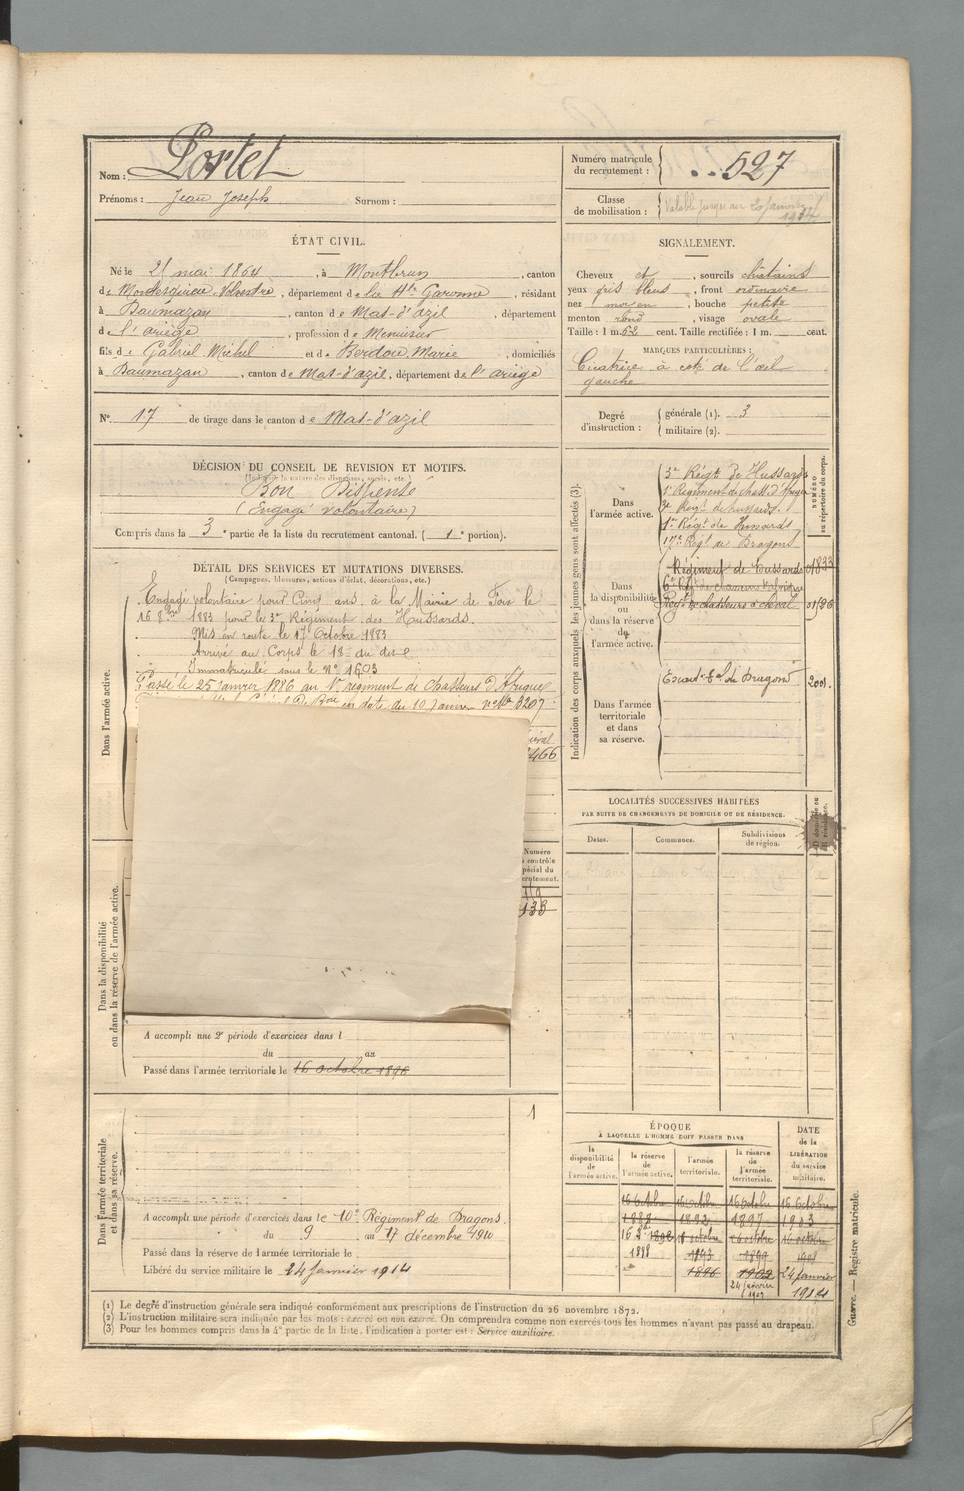 Nom : Portet
Prénoms : Jean Joseph Surnom :
Numéro matricule du recrutement : 527
Classe de mobilisation : Valable jusqu'au 20 Janvier
ÉTAT CIVIL.
Né le 21 mai 1864, à Montbrun, canton
de Montesquieu-Volvestre, département de la Hte Garonne, résidant
à Daumazan, canton de Mas-d'azil, département
de l'ariège, profession de Menuisier
fils de Gabriel Michel et de Berdou Marie, domiciliés
à Daumazan, canton de Mas-d'azil, département de l'ariège
N° 17 de tirage dans le canton de Mas-d'azil
SIGNALEMENT.
Cheveux et, sourcils châtains
yeux gris bleus, front ordinaire
nez moyen, bouche petite
menton rond, visage ovale
Taille : 1 m. 62 cent. Taille rectifiée : 1 m. cent.
MARQUES PARTICULIÈRES :
Cicatrice à coté de l'œil
gauche
Degré d'instruction : générale (1). 3
militaire (2).
DÉCISION DU CONSEIL DE REVISION ET MOTIFS.
(Indiquer la nature des dispenses, sursis, etc.)
Bon Dispensé
(Engagé volontaire)
Compris dans la 3e partie de la liste du recrutement cantonal. (1e portion).
DÉTAIL DES SERVICES ET MUTATIONS DIVERSES.
(Campagnes, blessures, actions d'éclat, décorations, etc.)
Dans l'armée active.
Engagé volontaire pour Cinq ans à la Mairie de Foix le
16 8bre 1883 pour le 3e Régiment des Hussards.
Mis en route le 17 Octobre 1883
Arrivé au Corps le 18 du dit
Immatriculé sous le N° 1603
Passé le 25 janvier 1886 au 1er régiment de Chasseurs d'Afrique
en date du 10 Janvier n° Mle 3207
466
Dans la disponibilité ou dans la réserve de l'armée active.
Numéro
contrôle
spécial du
recrutement.
119
133
A accompli une 2e période d'exercices dans l
du au
Passé dans l'armée territoriale le 16 octobre 1896
Dans l'armée territoriale et dans sa réserve.
1
A accompli une période d'exercices dans le 10e Régiment de Dragons.
du 9 au 17 décembre 1900
Passé dans la réserve de l'armée territoriale le
Libéré du service militaire le 24 Janvier 1914
Indication des corps auxquels les jeunes gens sont affectés (3).
NUMÉRO au répertoire du corps.
Dans l'armée active.
3e Régt de Hussards
1er Régiment de chass. d'Afrique
2e Régt de hussards.
1er Régt de Hussards
17e Régt de Dragons
Dans la disponibilité ou dans la réserve de l'armée active.
Régiment de Hussards 01833
6e Rgt de chasseurs d'afrique
Régt de chasseurs à cheval 01/86
Dans l'armée territoriale et dans sa réserve.
Escadn Tal de Dragons 2001.
LOCALITÉS SUCCESSIVES HABITÉES
PAR SUITE DE CHANGEMENTS DE DOMICILE OU DE RÉSIDENCE.
Dates. Communes. Subdivisions de région. D domicile ou R résidence.
ÉPOQUE
À LAQUELLE L'HOMME DOIT PASSER DANS
DATE de la LIBÉRATION du service militaire.
la disponibilité de l'armée active. la réserve de l'armée active. l'armée territoriale. la réserve de l'armée territoriale.
16 Octobre 16 Octobre 16 Octobre 16 Octobre
1888 1892 1897 1903
16 8bre 1898 16 octobre 16 octobre 16 octobre
1888 1893 1899 1908
1896 1902 24 janvier
24 janvier 1907 1914
Guerre. — Registre matricule.
(1) Le degré d'instruction générale sera indiqué conformément aux prescriptions de l'instruction du 26 novembre 1872.
(2) L'instruction militaire sera indiquée par les mots : exercé ou non exercé. On comprendra comme non exercés tous les hommes n'ayant pas passé au drapeau.
(3) Pour les hommes compris dans la 4e partie de la liste, l'indication à porter est : Service auxiliaire.